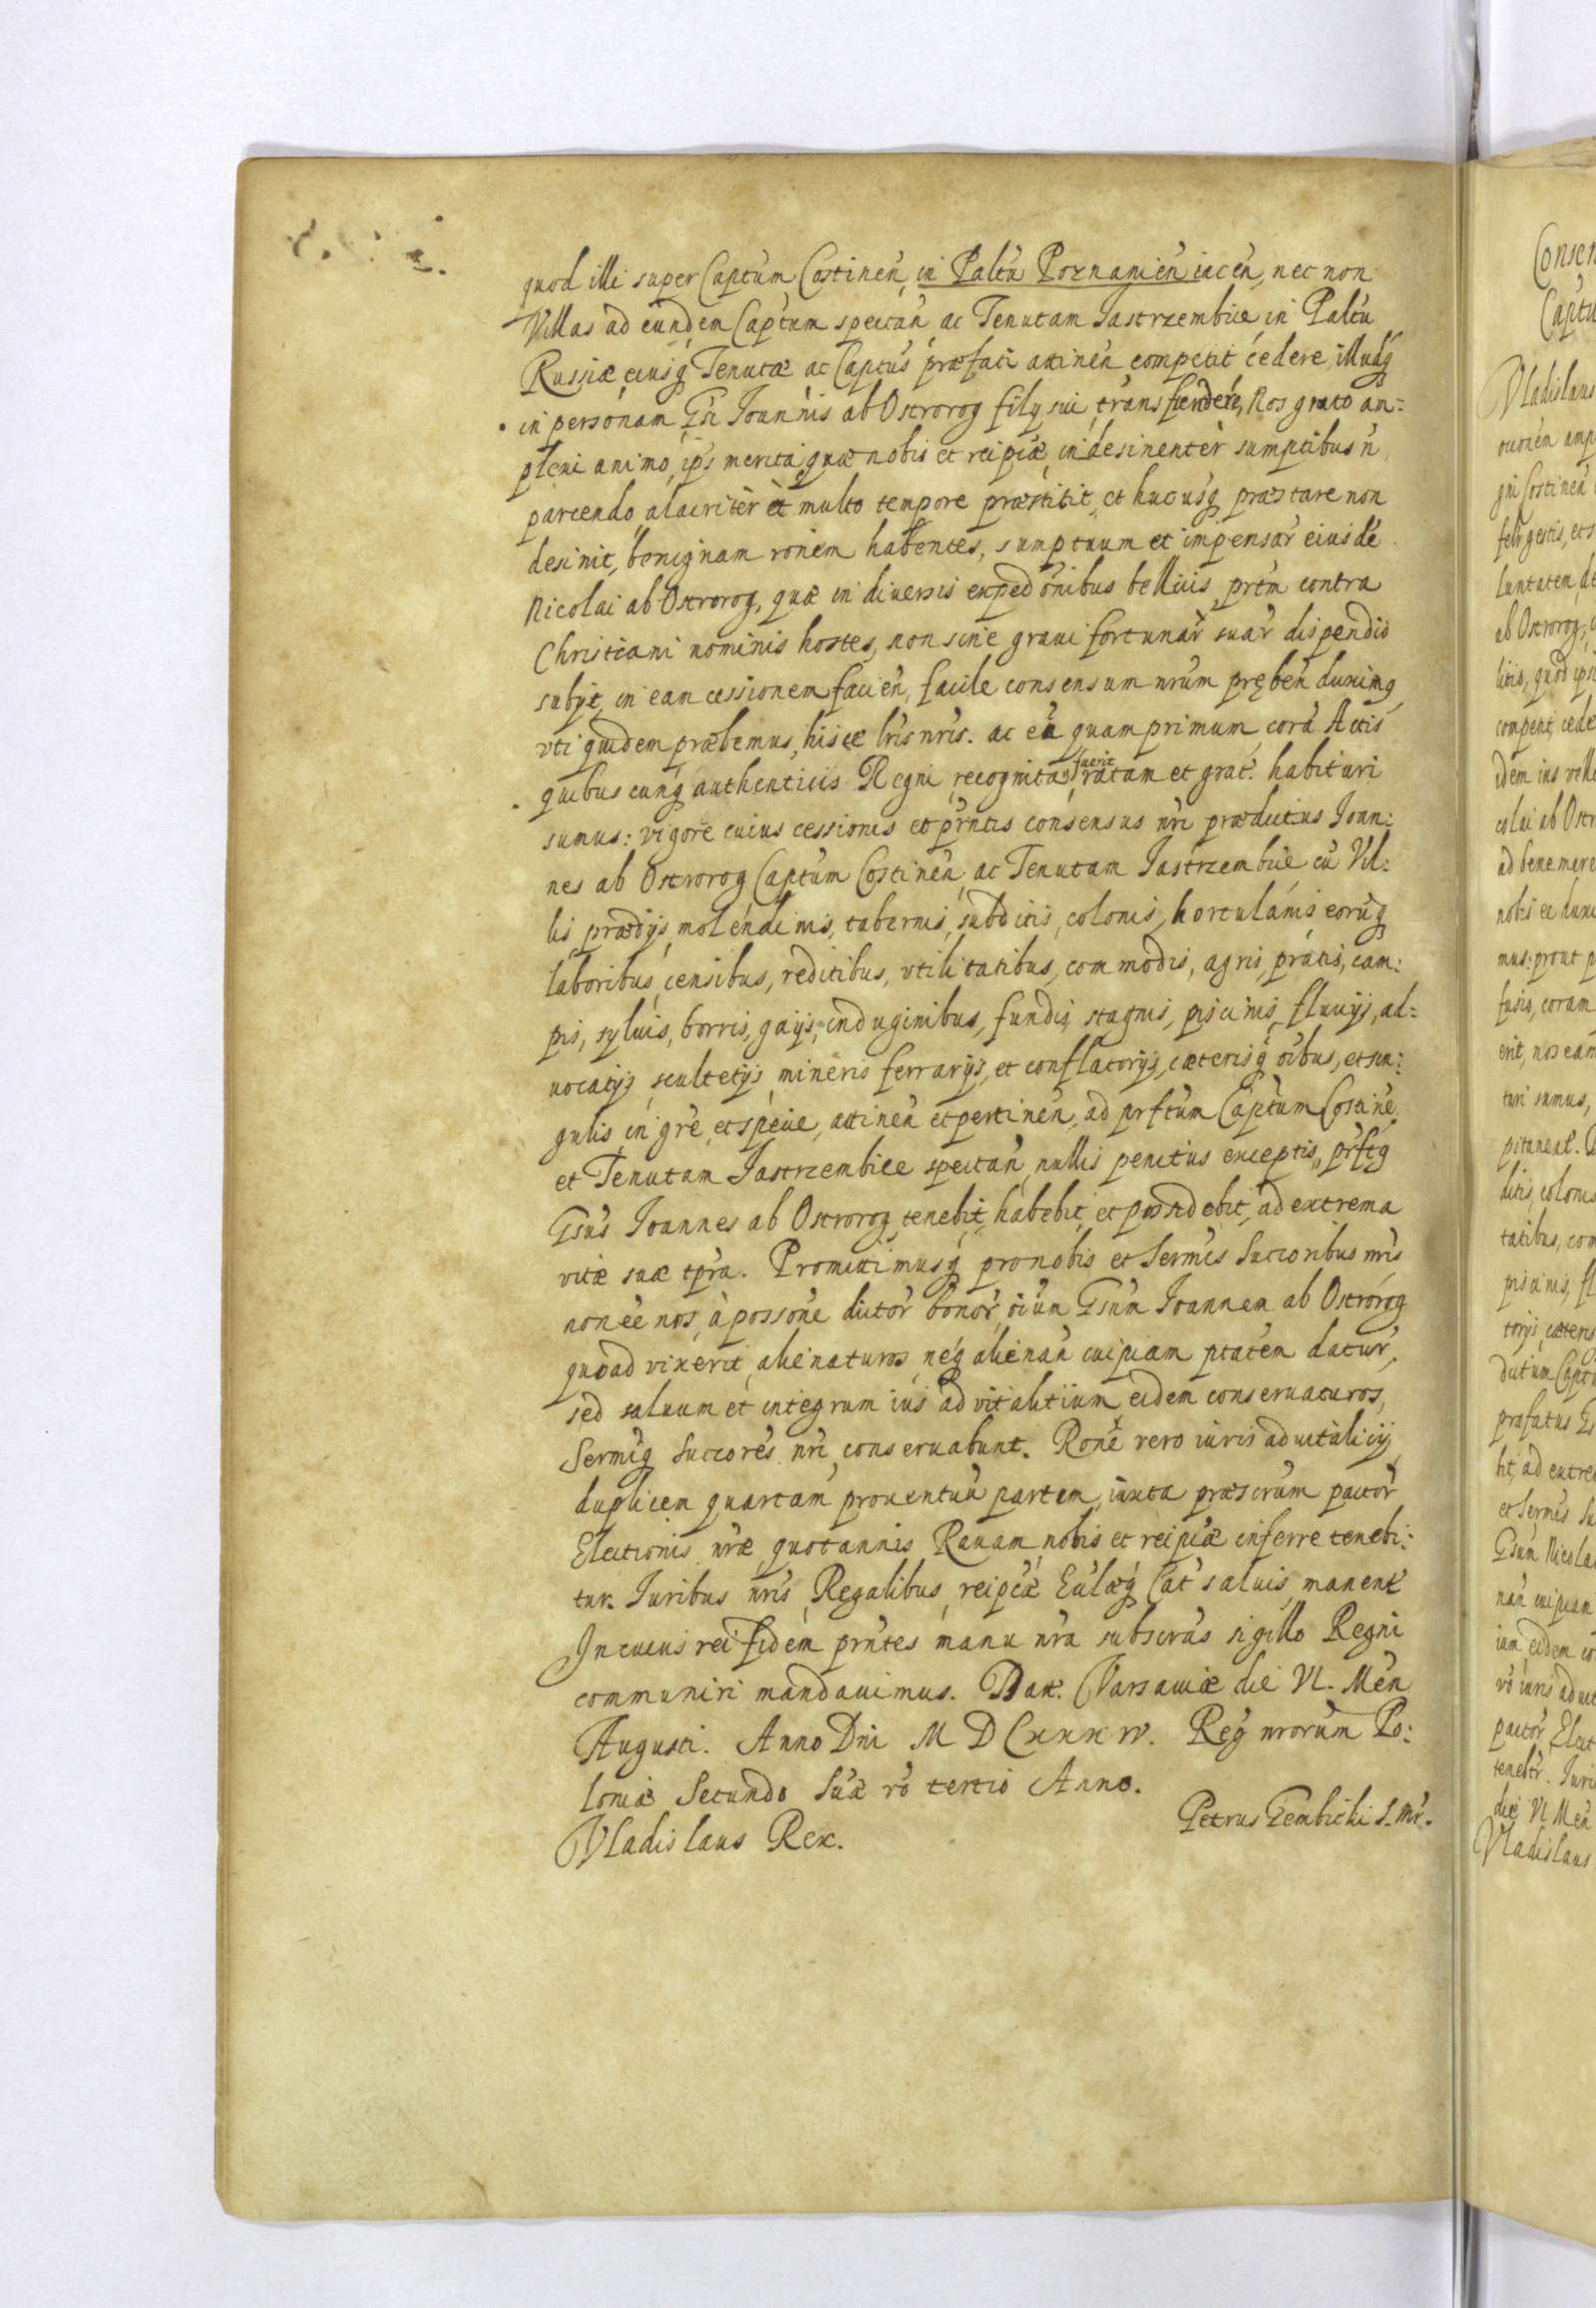 quod illi super Captum Costinen̄, in Paltū Poznanien̄ iacen̄, nec non
Villas ad eundem Captum spectan̄, ac Tenutam Jastrzembice in Paltu
Russiæ, eiusq́ Tenutæ ac Captus præfati attinen̄ competit cedere, illudq́
in personam Gsi Joannis ab Ostrorog filÿ sui transfundere, Nos grato am=
pleni animo, ip̄s merita, quæ nobis et reipcæ, indesinenter sumptibus n̄
parcendo, alacriter et multo tempore præstitit, et hucusq́ præstare non
desinit, benignam ronem habentes, sumptuum et impensar̄ eiusdē
Nicolai ab Ostrorog, quæ in diuersis expedōnibus bellicis prtm contra
Christiani nominis hostes, non sine graui fortunar̄ suar̄ dispendio
subÿt, in eam cessionem facien̄, facile consensum nr̄um pręben̄ duximq,
vti quidem præbemus, hisce lr̄is nr̄is. ac eā quam primum corā Actis
quibuscunq́ authenticis Regni, recognita fuerit, ratam et grat. habituri
sumus: vigore cuius cessionis et prn̄tis consensus nr̄i prædictus Joan:
nes ab Ostrorog Captum Costinen̄, ac Tenutam Jastrzembice cū Vil:
lis, prædÿs, molendinis, tabernis, subditis, colonis, hortulanis, eorūq
laboribus, censibus, reditibus, vtilitatibus, commodis, agris, pratis, cam:
pis, syluis, borris, gaÿs, indaginibus, fundis, stagnis, piscinis, fluuÿs, ad=
uocatÿs, scultetÿs, mineris ferrarÿs, et conflatorÿs, cæterisq́ oībus, et sin:
gulis, in gr̄e, et spēie, attinen̄ et pertinen̄, ad prftum Captum Costinē
et Tenutam Jastrzembice spectan̄, nullis penitus exceptis, prftq
Gsus Joannes ab Ostrorog, tenebit, habebit, et possidebit, ad extrema
vitæ suæ tp̄ra. Promittimusq́ pro nobis et Sermis Succoribus nr̄is
non eē nos, à possone dictor̄ bonor̄, oīum Gsum Joannem ab Ostrorog,
quoad vixerit, alienaturos, neq́ alienan̄ cuipiam ptatem datur̄,
sed saluum et integrum ius aduitalitium eidem conseruaturos,
Sermiq Succores nr̄i conseruabunt. Ronē vero iuris aduitalicÿ
duplicem quartam prouentuū partem, iuxta præscrūm pactor̄
Electionis nr̄æ, quotannis Rauam nobis et reipcæ inferre tenebi:
tur. Juribus nr̄is, Regalibus, reipcæ, Eūlæq́ Cat saluis, manent
In cuius rei fidem prn̄tes manu nr̄a subscrās sigillo Regni
communiri mandauimus. Dat. Varsauiæ die VI. Men
Augusti. Anno Dn̄i M D CXXXIV. Reg nr̄orum Po:
loniæ Secundo Suæ rō tertio Anno.
Vladislaus Rex.
Petrus Gembicki S. Mr̄.